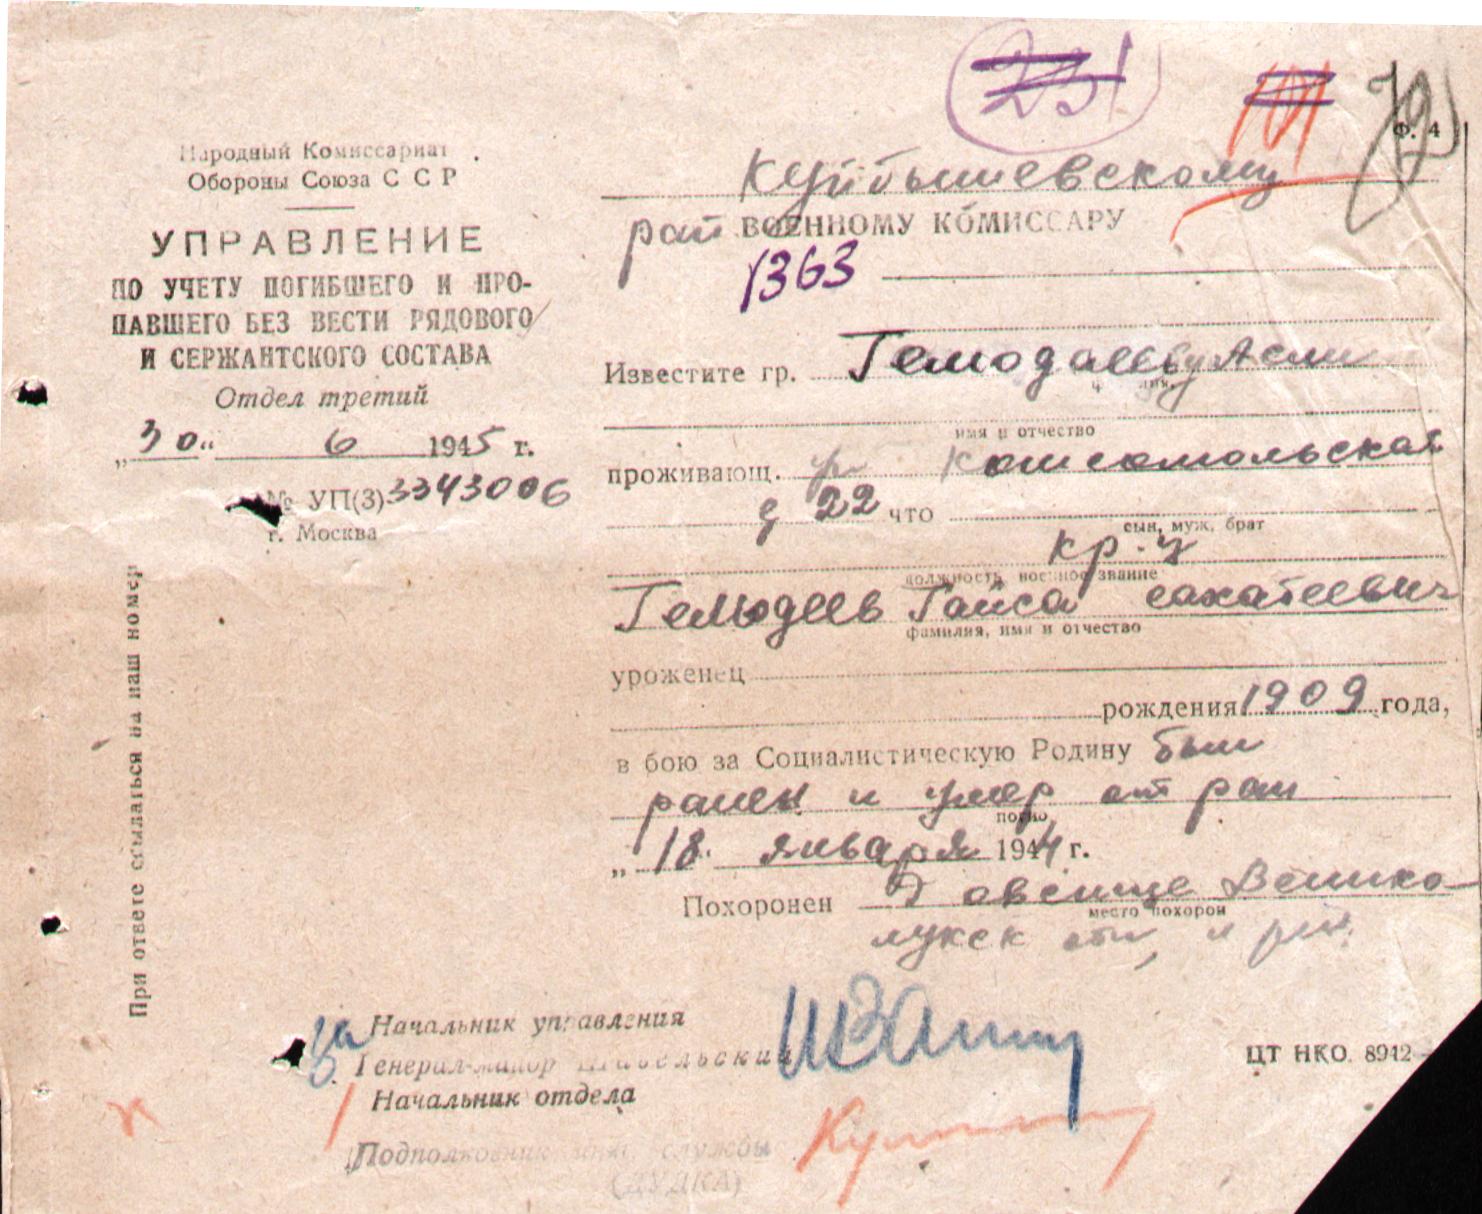 231
101
79
Ф. 4
Народный Комиссариат
Обороны Союза ССР
УПРАВЛЕНИЕ
ПО УЧЕТУ ПОГИБШЕГО И ПРО-
ПАВШЕГО БЕЗ ВЕСТИ РЯДОВОГО
И СЕРЖАНТСКОГО СОСТАВА
Отдел третий
„30“ 6 1945 г.
№ УП(3) 3343006
г. Москва
При ответе ссылаться на наш номер
Куйбышевскому
рай ВОЕННОМУ КОМИССАРУ
1363
Известите гр. Гемодаеву
имя и отчество
проживающ. ул Комсомольская
д 22 что
сын, муж, брат
кр-ц
должность, военное звание
Гемодеев Гайса сахатеевич
фамилия, имя и отчество
уроженец
рождения 1909 года,
в бою за Социалистическую Родину был
ранен и умер от ран
„18. января 1944 г.
Похоронен Д Велико
место похорон
лукск
Начальник управления
Генерал-майор Шавельский
Начальник отдела
Подполковник инт. службы
(ДУДКА)
ЦТ НКО. 8942